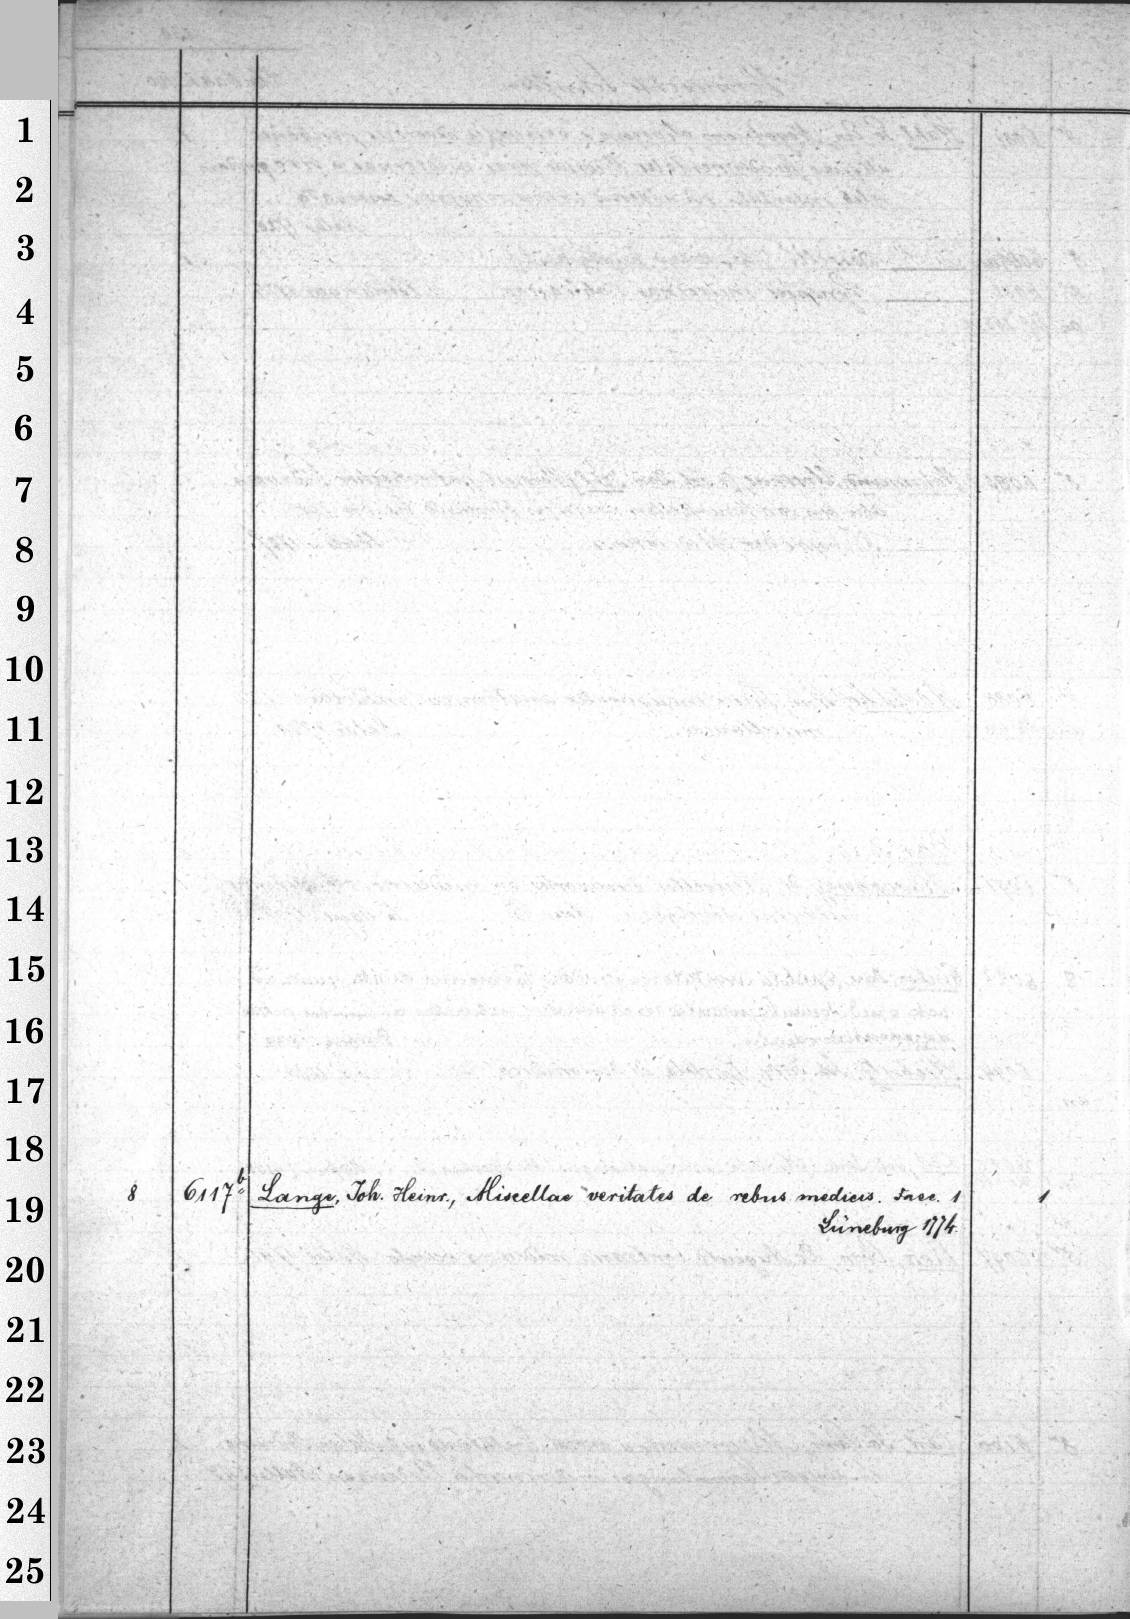 1
2
3
4
5
6
7
8
9
10
11
12
13
14
15
16
17
18
8 6117b Lange, Joh. Heinr., Miscellae veritates de rebus medicis. Fasc. 1 1
19
Lüneburg 1774.
20
21
22
23
24
25